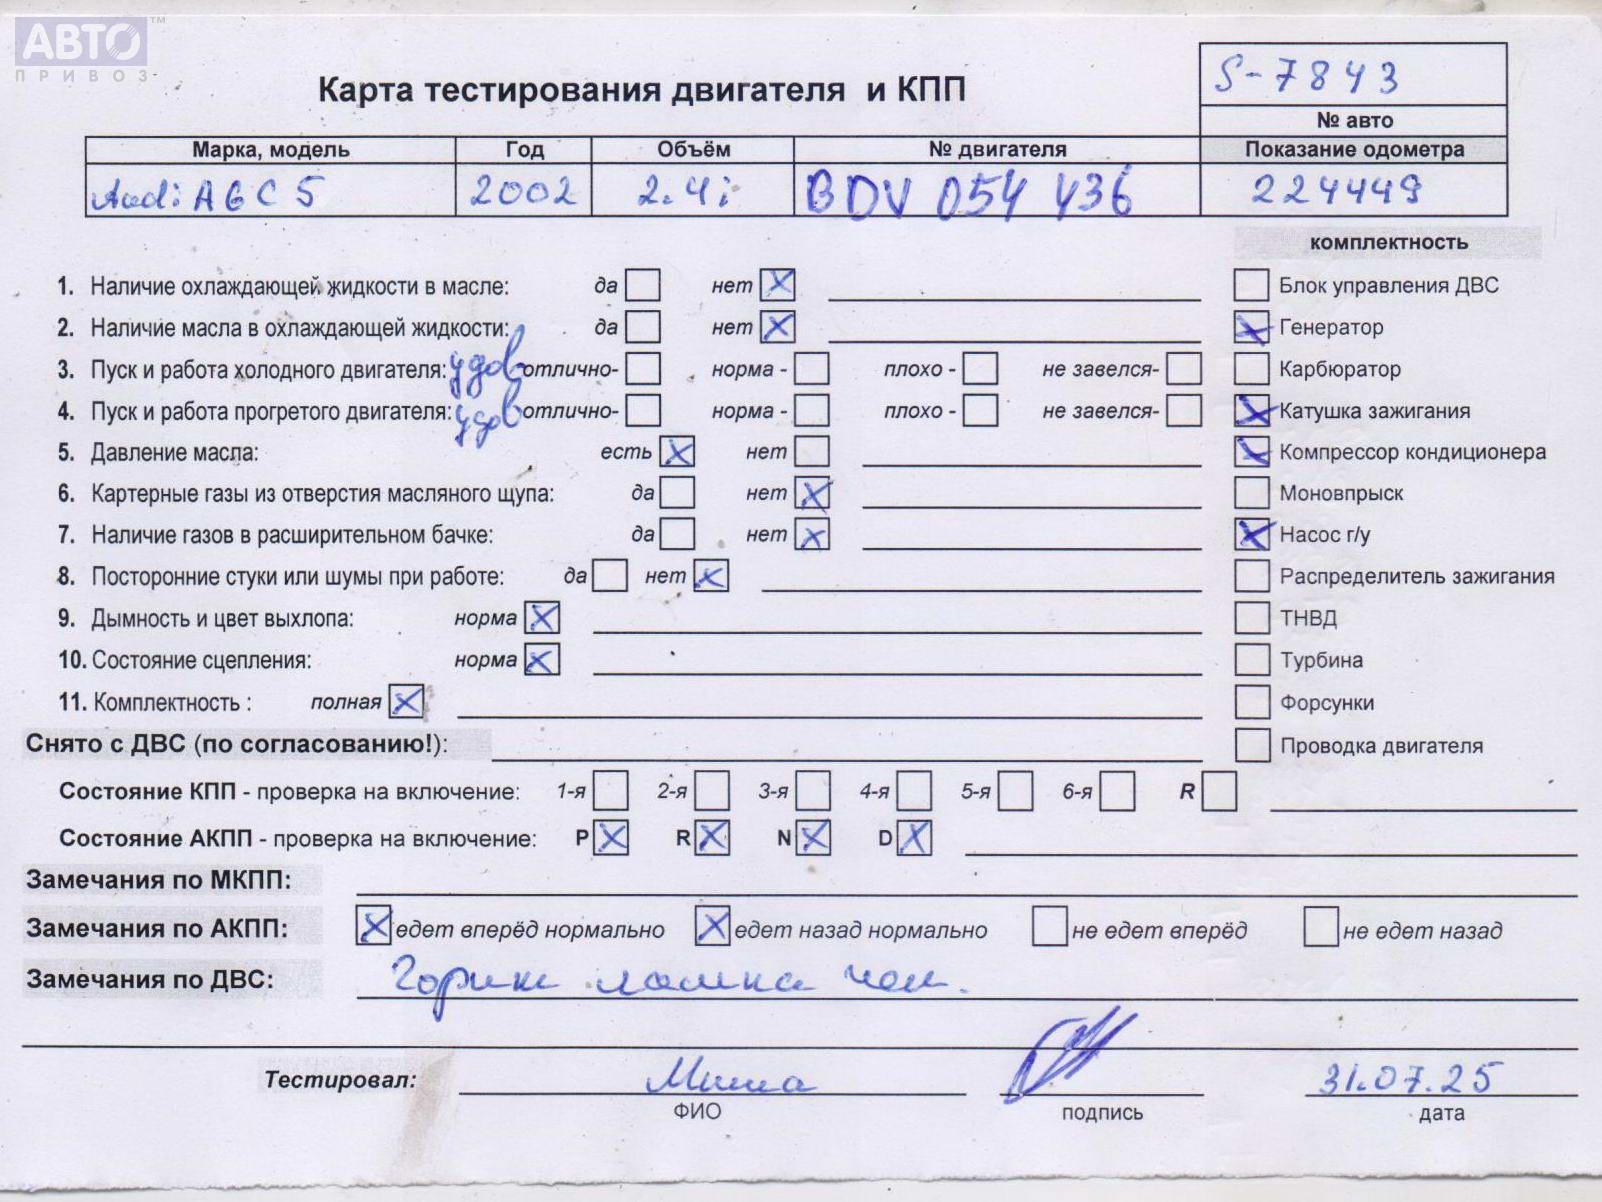 АВТО™
ПРИВОЗ
S-7843
Карта тестирования двигателя и КПП
№ авто
Марка, модель Год Объём № двигателя Показание одометра
Audi A6 C5 2002 2.4i BDV 054 436 224449
комплектность
1. Наличие охлаждающей жидкости в масле: да нет
Блок управления ДВС
2. Наличие масла в охлаждающей жидкости: да нет
Генератор
3. Пуск и работа холодного двигателя: удов отлично- норма - плохо - не завелся-
Карбюратор
4. Пуск и работа прогретого двигателя: удов отлично- норма - плохо - не завелся-
Катушка зажигания
5. Давление масла: есть нет
Компрессор кондиционера
6. Картерные газы из отверстия масляного щупа: да нет
Моновпрыск
7. Наличие газов в расширительном бачке: да нет
Насос г/у
8. Посторонние стуки или шумы при работе: да нет
Распределитель зажигания
9. Дымность и цвет выхлопа: норма
ТНВД
10. Состояние сцепления: норма
Турбина
11. Комплектность : полная
Форсунки
Снято с ДВС (по согласованию!):
Проводка двигателя
Состояние КПП - проверка на включение: 1-я 2-я 3-я 4-я 5-я 6-я R
Состояние АКПП - проверка на включение: P R N D
Замечания по МКПП:
Замечания по АКПП: едет вперёд нормально едет назад нормально не едет вперёд не едет назад
Замечания по ДВС: Горит
Тестировал: Миша 31.07.25
ФИО подпись дата